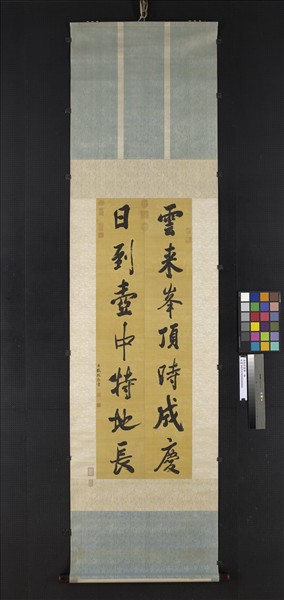 雲来峯頂時成慶
日到壺中特地長